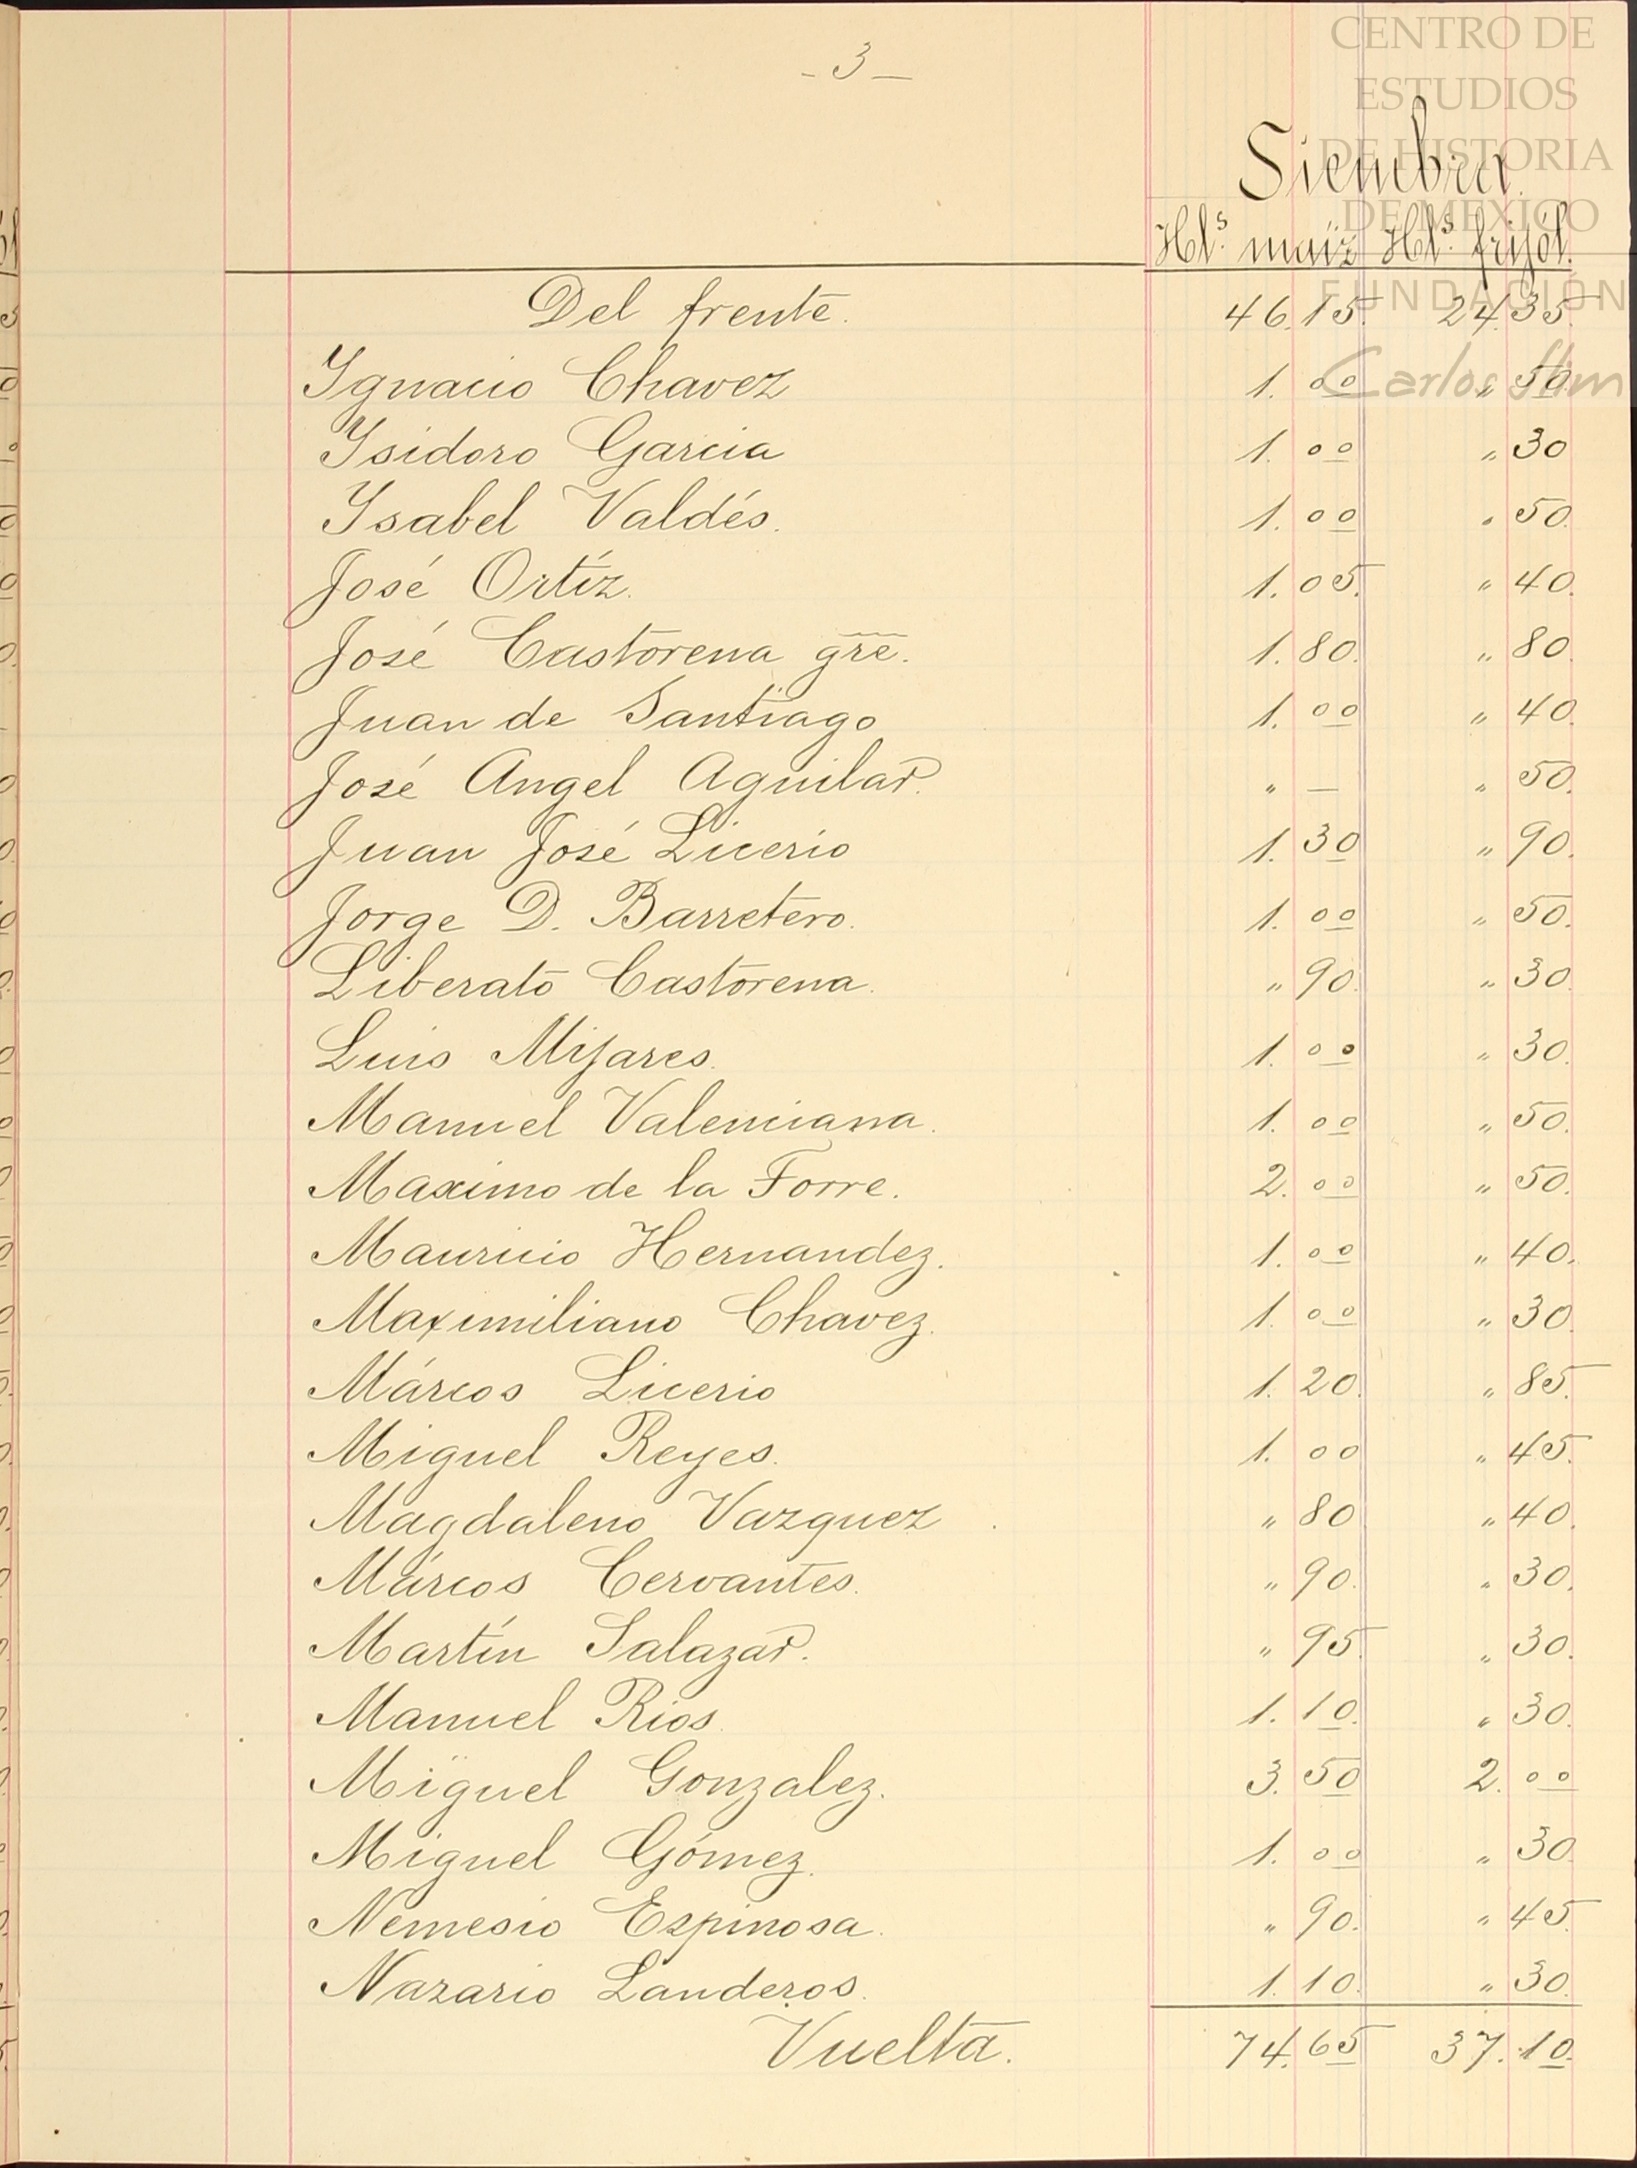 - 3 -
CENTRO DE
ESTUDIOS
DE HISTORIA
DE MÉXICO
FUNDACIÓN
Carlos Slim
Siembra.
Hl.s maíz Hl.s frijól.
Del frente. 46.15. 24.35.
Ygnacio Chavez 1.00 " 50.
Ysidoro Garcia 1.00 " 30
Ysabel Valdés. 1.00 " 50.
José Ortíz. 1.05. " 40.
José Castorena gre. 1.80. " 80.
Juan de Santiago 1.00 " 40.
José Angel Aguilar. " — " 50.
Juan José Licerio 1.30 " 90.
Jorge D. Barretero. 1.00 " 50.
Liberato Castorena. " 90. " 30.
Luis Mijares. 1.00 " 30.
Manuel Valenciana. 1.00 " 50.
Maximo de la Torre. 2.00 " 50.
Mauricio Hernandez. 1.00 " 40.
Maximiliano Chavez. 1.00 " 30.
Márcos Licerio 1.20. " 85.
Miguel Reyes. 1.00 " 45.
Magdaleno Vazquez " 80 " 40.
Márcos Cervantes. " 90. " 30.
Martín Salazar. " 95. " 30.
Manuel Rios. 1.10. " 30.
Miguel Gonzalez. 3.50 2.00
Miguel Gómez. 1.00 " 30.
Nemesio Espinosa. " 90. " 45.
Nazario Landeros. 1.10. " 30.
Vuelta. 74.65 37.10.